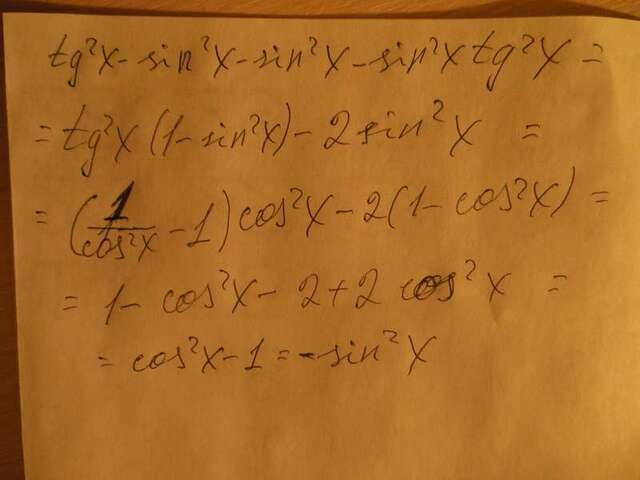 tg²x - sin²x - sin²x - sin²x tg²x =
= tg²x (1 - sin²x) - 2 sin²x =
= (1/cos²x - 1) cos²x - 2(1 - cos²x) =
= 1 - cos²x - 2 + 2 cos²x =
= cos²x - 1 = -sin²x